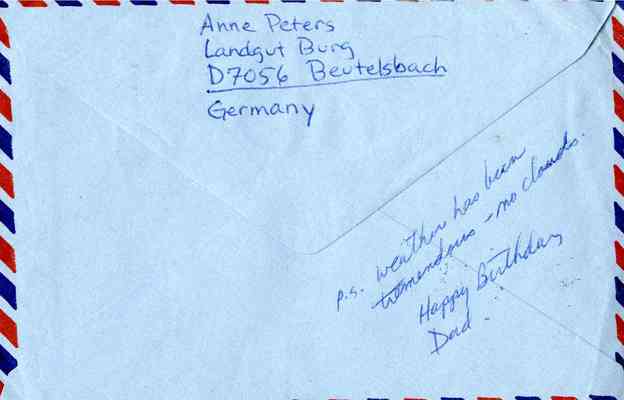 Anne Peters
Landgut Burg
D7056 Beutelsbach
Germany
p.s. weather has been
tremendous - no clouds.
Happy Birthday
Dad.